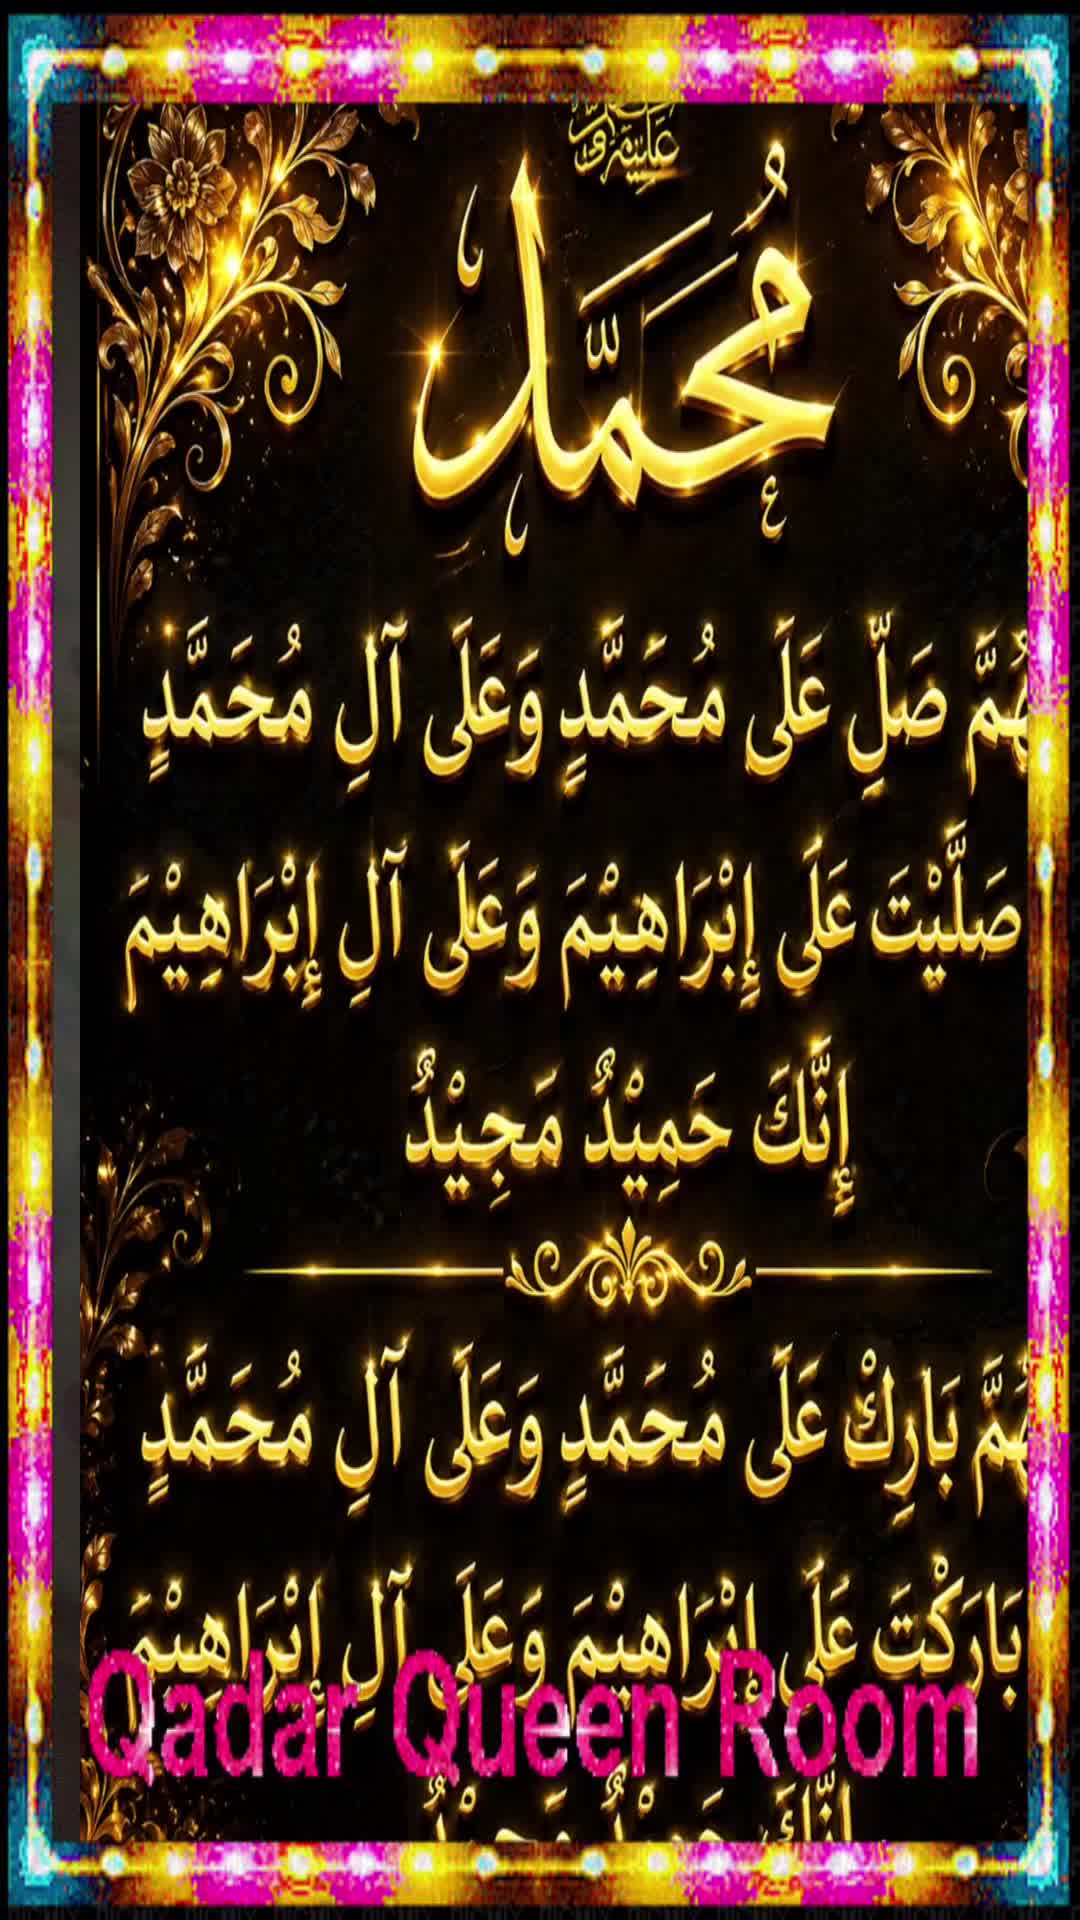 مُحَمَّد
صَلِّ عَلَى مُحَمَّدٍ وَعَلَى آلِ مُحَمَّدٍ
صَلَّيْتَ عَلَى إِبْرَاهِيْمَ وَعَلَى آلِ إِبْرَاهِيْمَ
إِنَّكَ حَمِيْدٌ مَجِيْدٌ
بَارِكْ عَلَى مُحَمَّدٍ وَعَلَى آلِ مُحَمَّدٍ
بَارَكْتَ عَلَى إِبْرَاهِيْمَ وَعَلَى آلِ إِبْرَاهِيْمَ
Qadar Queen Room
إِنَّكَ حَمِيْدٌ مَجِيْدٌ